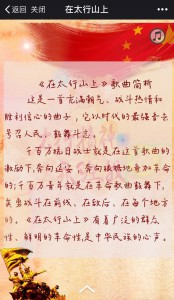 返回 关闭 在太行山上
《在太行山上》歌曲简析
这是一首充满朝气、战斗热情和
胜利信心的曲子，它以时代的最强音去
号召人民，鼓舞斗志。
千百万抗日战士就是在这首歌曲的
激励下，奔向延安，奔向根据地参加革命
的；千百万青年就是在革命歌曲鼓舞下，
英勇战斗在前线、在敌后、在每个地方
的。《在太行山上》有着广泛的群众
性，鲜明的革命性，是中华民族的心声。